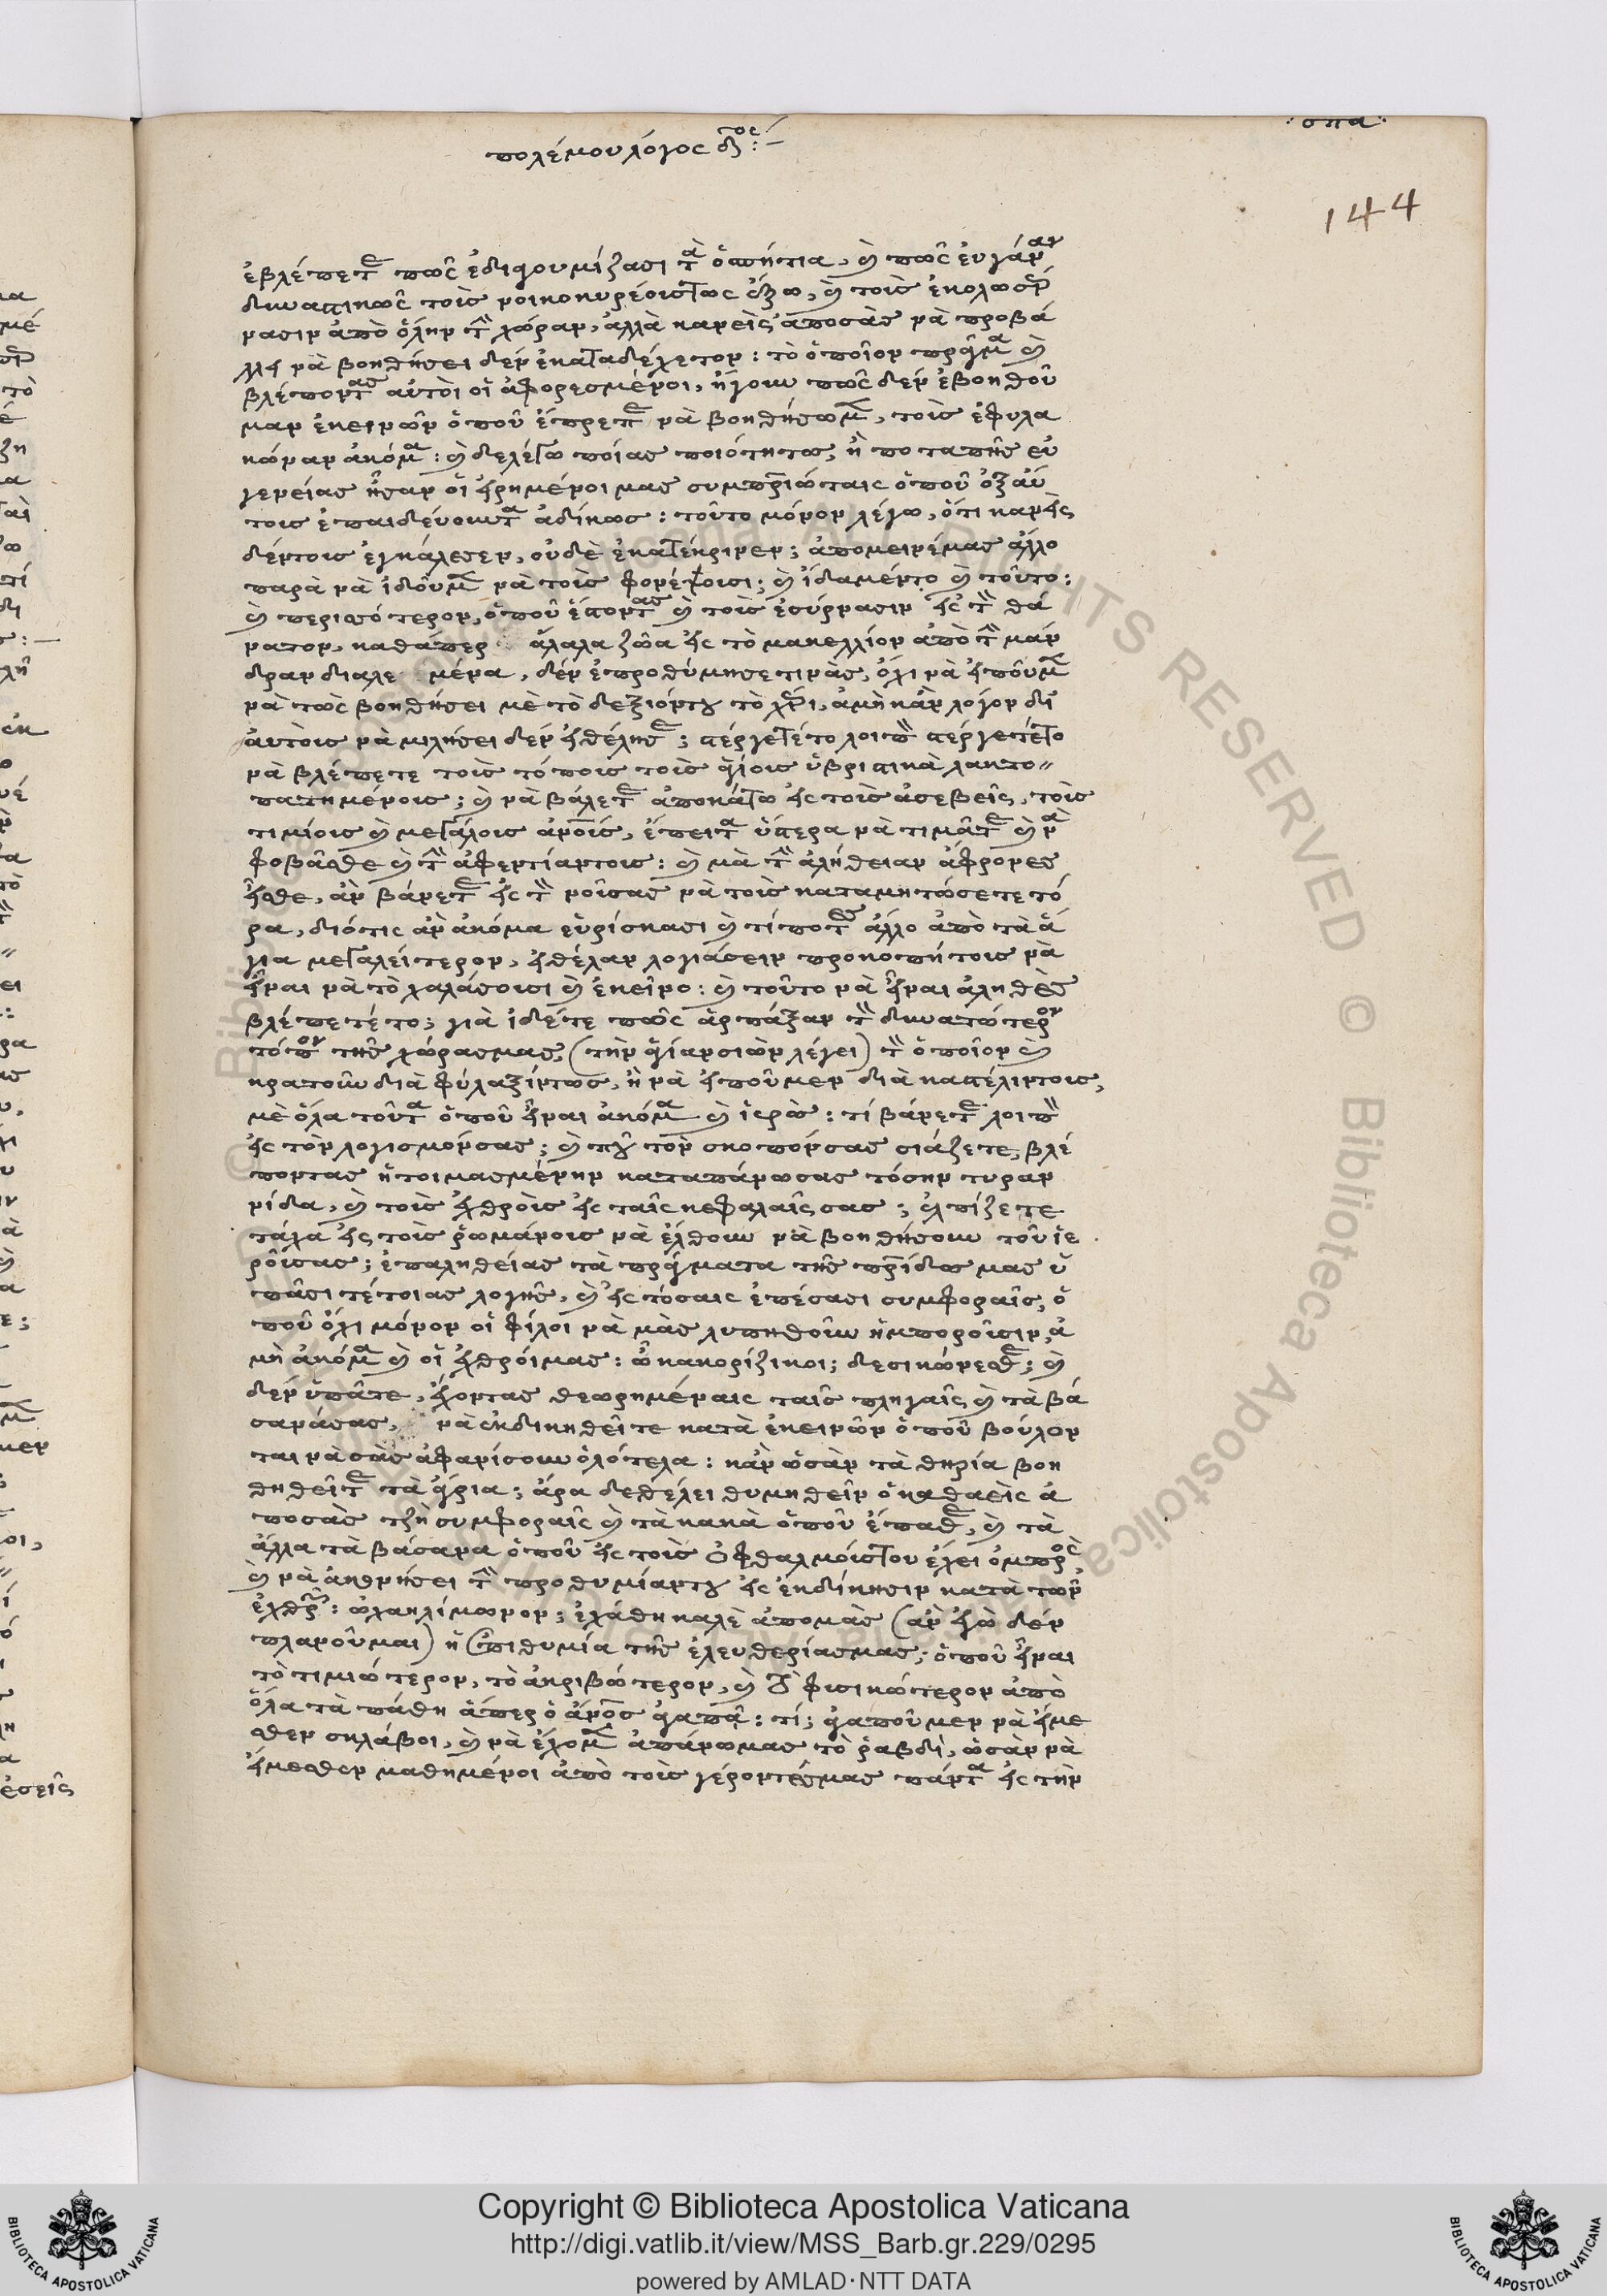 ·σπα·
πολέμου λόγος δος:—
144
ἐβλέπετε πῶς ἐδιαγουμίζασι τὰ ὀσπήτια, καὶ πῶς εὐγάναν
δυναστικῶς τοὺς νοικοκυρέους τως ἔξω, καὶ τοὺς ἐκολοσύρ
νασιν ἀπὸ ὅλην τὴν χώραν, ἀλλὰ κανεὶς ἀποσᾶς νὰ προβά
λλει νὰ βοηθήσει δὲν ἐκαταδέχετον: τὸ ὁποῖον πρᾶγμα καὶ
βλέποντας αὐτοὶ οἱ ἀφορεσμένοι, ἤγουν πῶς δὲν ἐβοηθοῦ
μαν ἐκεινῶν ὁποῦ ἔπρεπε νὰ βοηθήσωμεν, τοὺς ἐφυλα
κώναν ἀκόμα: καὶ δελέγω ποίας ποιότητος, ἢ ποταπῆς εὐ
γενείας ἦσαν οἱ εἰρημένοι μας συμπατριώταις ὁποῦ ὀξαύ
τους ἐπαιδεύουντα ἀδίκως: τοῦτο μόνον λέγω, ὅτι κανεὶς
δέντους ἐγκάλεσεν, οὐδὲ ἐκατέκρινεν; ἀπομεινέμας ἄλλο
παρὰ νὰ ἰδοῦμεν νὰ τοὺς φονέψουσι; καὶ ἴδαμέντο καὶ τοῦτο:
καὶ περισσότερον, ὁποῦ ἔστοντας καὶ τοὺς ἐσύρνασιν εἰς τὸν θά
νατον, καθάπερ ἄλαλα ζῶα εἰς τὸ μακελλίον ἀπὸ τὴν μάν
δραν διαλε μένα, δὲν ἐπροθύμησε τινὰς, ὄχι νὰ εἰποῦμεν
νὰ τὼς βοηθήσει μὲ τὸ δεξιόντου τὸ χέρι, ἀμὴ κἂν λόγον δι'
αὐτοὺς νὰ μιλήσει δὲν εἰθέλησε; στέργετέτο λοιπὸν στέργετέτο
νὰ βλέπετε τοὺς τόπους τοὺς ἁγίους ὑβριστικὰ λακπο-
πατημένους; καὶ νὰ βάλετε ἀποκάτω εἰς τοὺς ἀσεβεῖς, τοὺς
τιμίους καὶ μεγάλους ἀνθρώπους, ἔπειτα ὕστερα νὰ τιμᾶτε καὶ νὰ
φοβᾶσθε καὶ τὸν ἀφεντίαντους: καὶ μὰ τὴν ἀλήθειαν ἄφρονες
εἶσθε, ἂν βάνετε εἰς τὸν νοῦσας νὰ τοὺς καταμητώσετε τό
ρα, διότις ἂν ἀκόμα εὑρίσκασι καὶ τίποτες ἄλλο ἀπὸ τὰ ἅ
για μεγαλείτερον, εἰθέλαν λογιάσειν προκοπήτους νὰ
εἶναι νὰ τὸ χαλάσουσι καὶ ἐκεῖνο: καὶ τοῦτο νὰ εἶναι ἀληθὲς
βλέπετέτο; γιὰ ἰδέτε πῶς ἁρπάξαν τὸν δυνατώτερον
τόπον τῆς χώρασμας, (τὴν ἁγίαν σιὼν λέγει) τὸν ὁποῖον καὶ
κρατοῦν διὰ φύλαξίντως, ἢ νὰ εἰποῦμεν διὰ καστέλιντους,
μὲ ὅλα τοῦτα ὁποῦ εἶναι ἀκόμα καὶ ἱερὸς: τί βάνετε λοιπὸν
εἰς τὸν λογισμόνσας; καὶ ποῦ τὸν σκοπόνσας σιάζετε, βλέ
ποντας ἡτοιμασμένην καταπάνωσας τόσην τυραν
νίδα, καὶ τοὺς ἐχθροὺς εἰς ταῖς κεφαλαῖς σας; ἐλπίζετε
τάχα εἰς τοὺς ῥωμάνους νὰ ἔλθουν νὰ βοηθήσουν τοῦ ἱε
ροῦσας; ἐπαληθείας τὰ πράγματα τῆς πατρίδος μας ὑ
πᾶσι τέτοιας λογῆς, καὶ εἰς τόσαις ἐπέσασι συμφοραῖς, ὁ
ποῦ ὄχι μόνον οἱ φίλοι νὰ μᾶς λυπηθοῦν ἠμποροῦσιν, ἀ
μὴ ἀκόμα καὶ οἱ ἐχθροίμας: ὦ κακορίζικοι; δεσικώνεσθε; καὶ
δὲν ὑπᾶτε, ἔχοντας θεωρημέναις ταῖς πληγαῖς, καὶ τὰ βά
σανάσας, νὰ ἐκδικηθεῖτε κατὰ ἐκεινῶν ὁποῦ βούλον
ται νὰ σᾶς ἀφανίσουν ὁλότελα: κἂν ὡσὰν τὰ θηρία βοη
θηθεῖτε τὰ ἄγρια; ἆρα δεθέλει θυμηθεῖν ὁ καθαεὶς ἀ
ποσᾶς τζὴ συμφοραῖς καὶ τὰ κακὰ ὁποῦ ἔπαθε, καὶ τὰ
ἄλλα τὰ βάσανα ὁποῦ εἰς τοὺς ὀφθαλμούς του ἔχει ὀμπρὸς
καὶ νὰ ἀκονήσει τὴν προθυμίαντου εἰς ἐκδίκησιν κατὰ τῶν
ἐχθρῶν: ὠχ κλίμονον; ἐχάθηκαλὲ ἀπομᾶς (ἂν ἐγὼ δὲν
πλανοῦμαι) ἡ ἐπιθυμία τῆς ἐλευθερίασμας; ὁποῦ εἶναι
τὸ τιμιώτερον, τὸ ἀκριβώτερον, καὶ τὸ φισικώτερον ἀπὸ
ὅλα τὰ πάθη ἅπερ ὁ ἄνθρωπος ἀγαπᾷ: τί; ἀγαποῦμεν νὰ εἴμε
σθεν σκλάβοι, καὶ νὰ ἔχομεν ἀπάνωμας τὸ ῥαβδὶ, ὡσὰν νὰ
εἴμεσθεν μαθημένοι ἀπὸ τοὺς γέροντέσμας πάντα εἰς τὴν
Copyright © Biblioteca Apostolica Vaticana
http://digi.vatlib.it/view/MSS_Barb.gr.229/0295
powered by AMLAD·NTT DATA